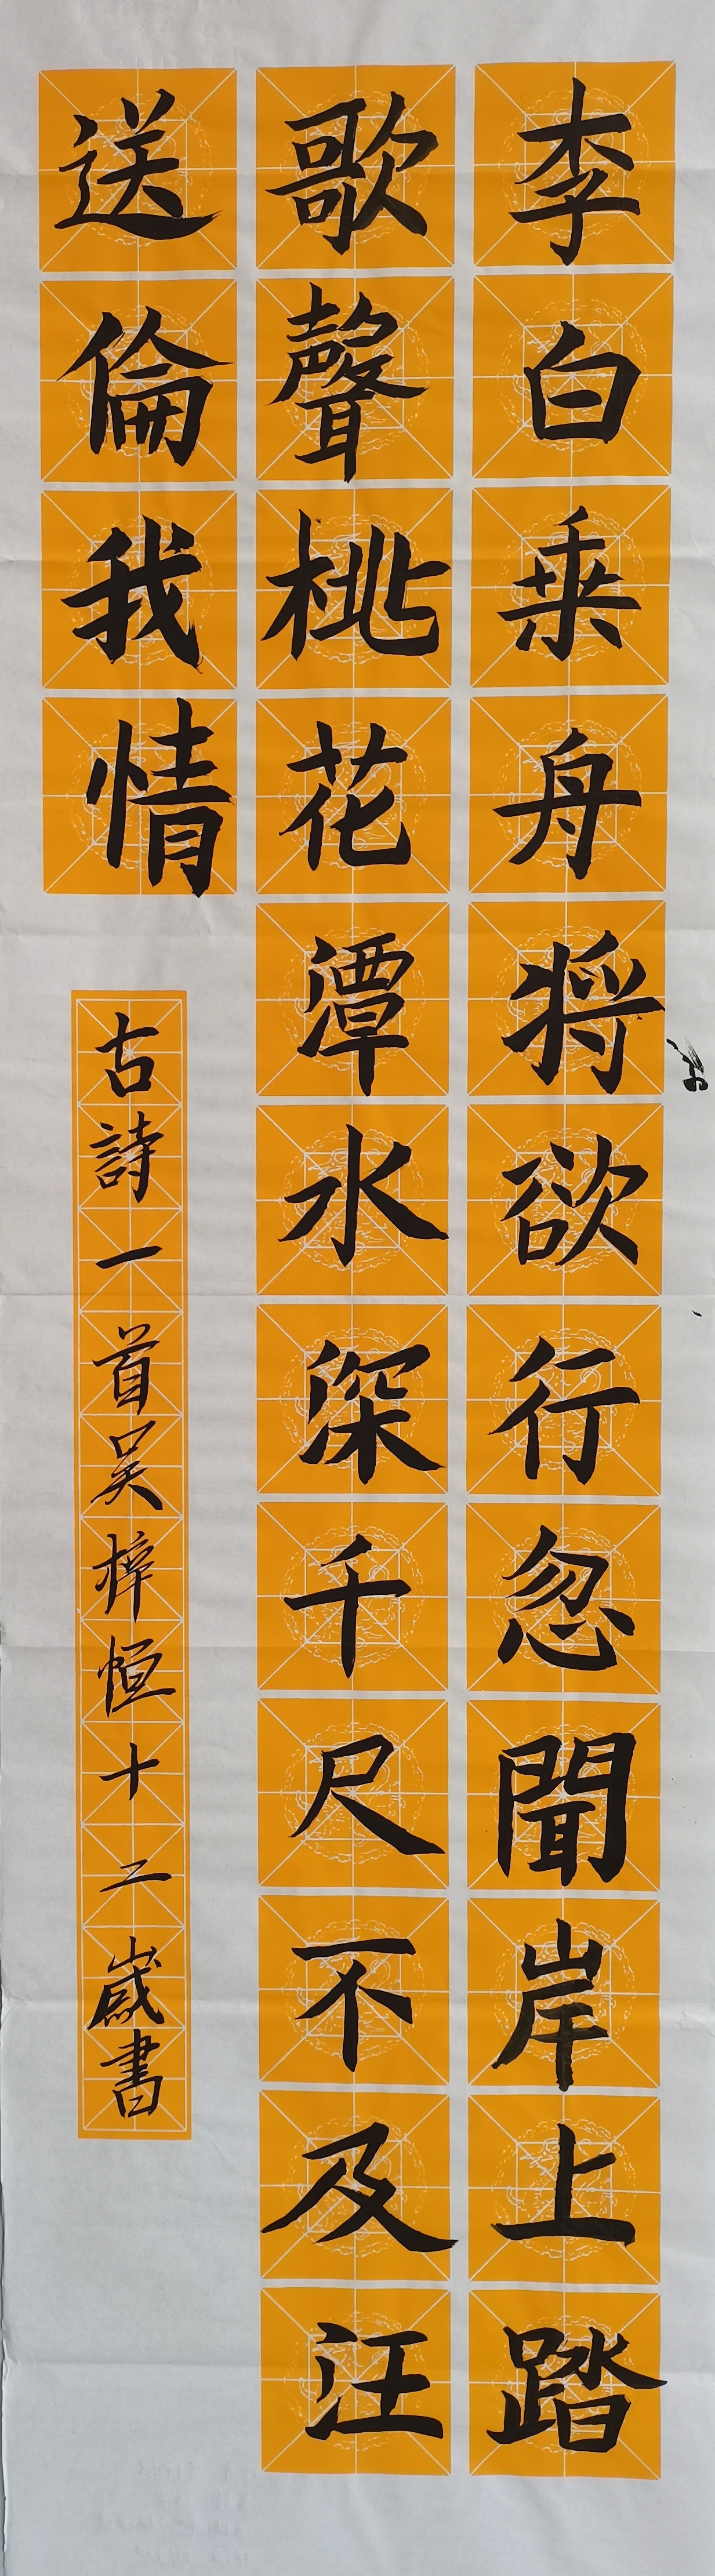 李白乗舟将欲行忽聞岸上踏
歌聲桃花潭水深千尺不及汪
送倫我情
古詩一首吴梓恒十二歲書